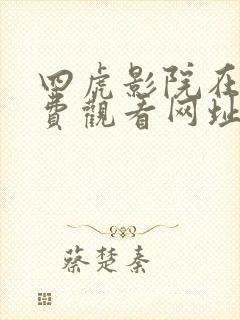 四虎影院在
费觀看网址
蔡楚秦